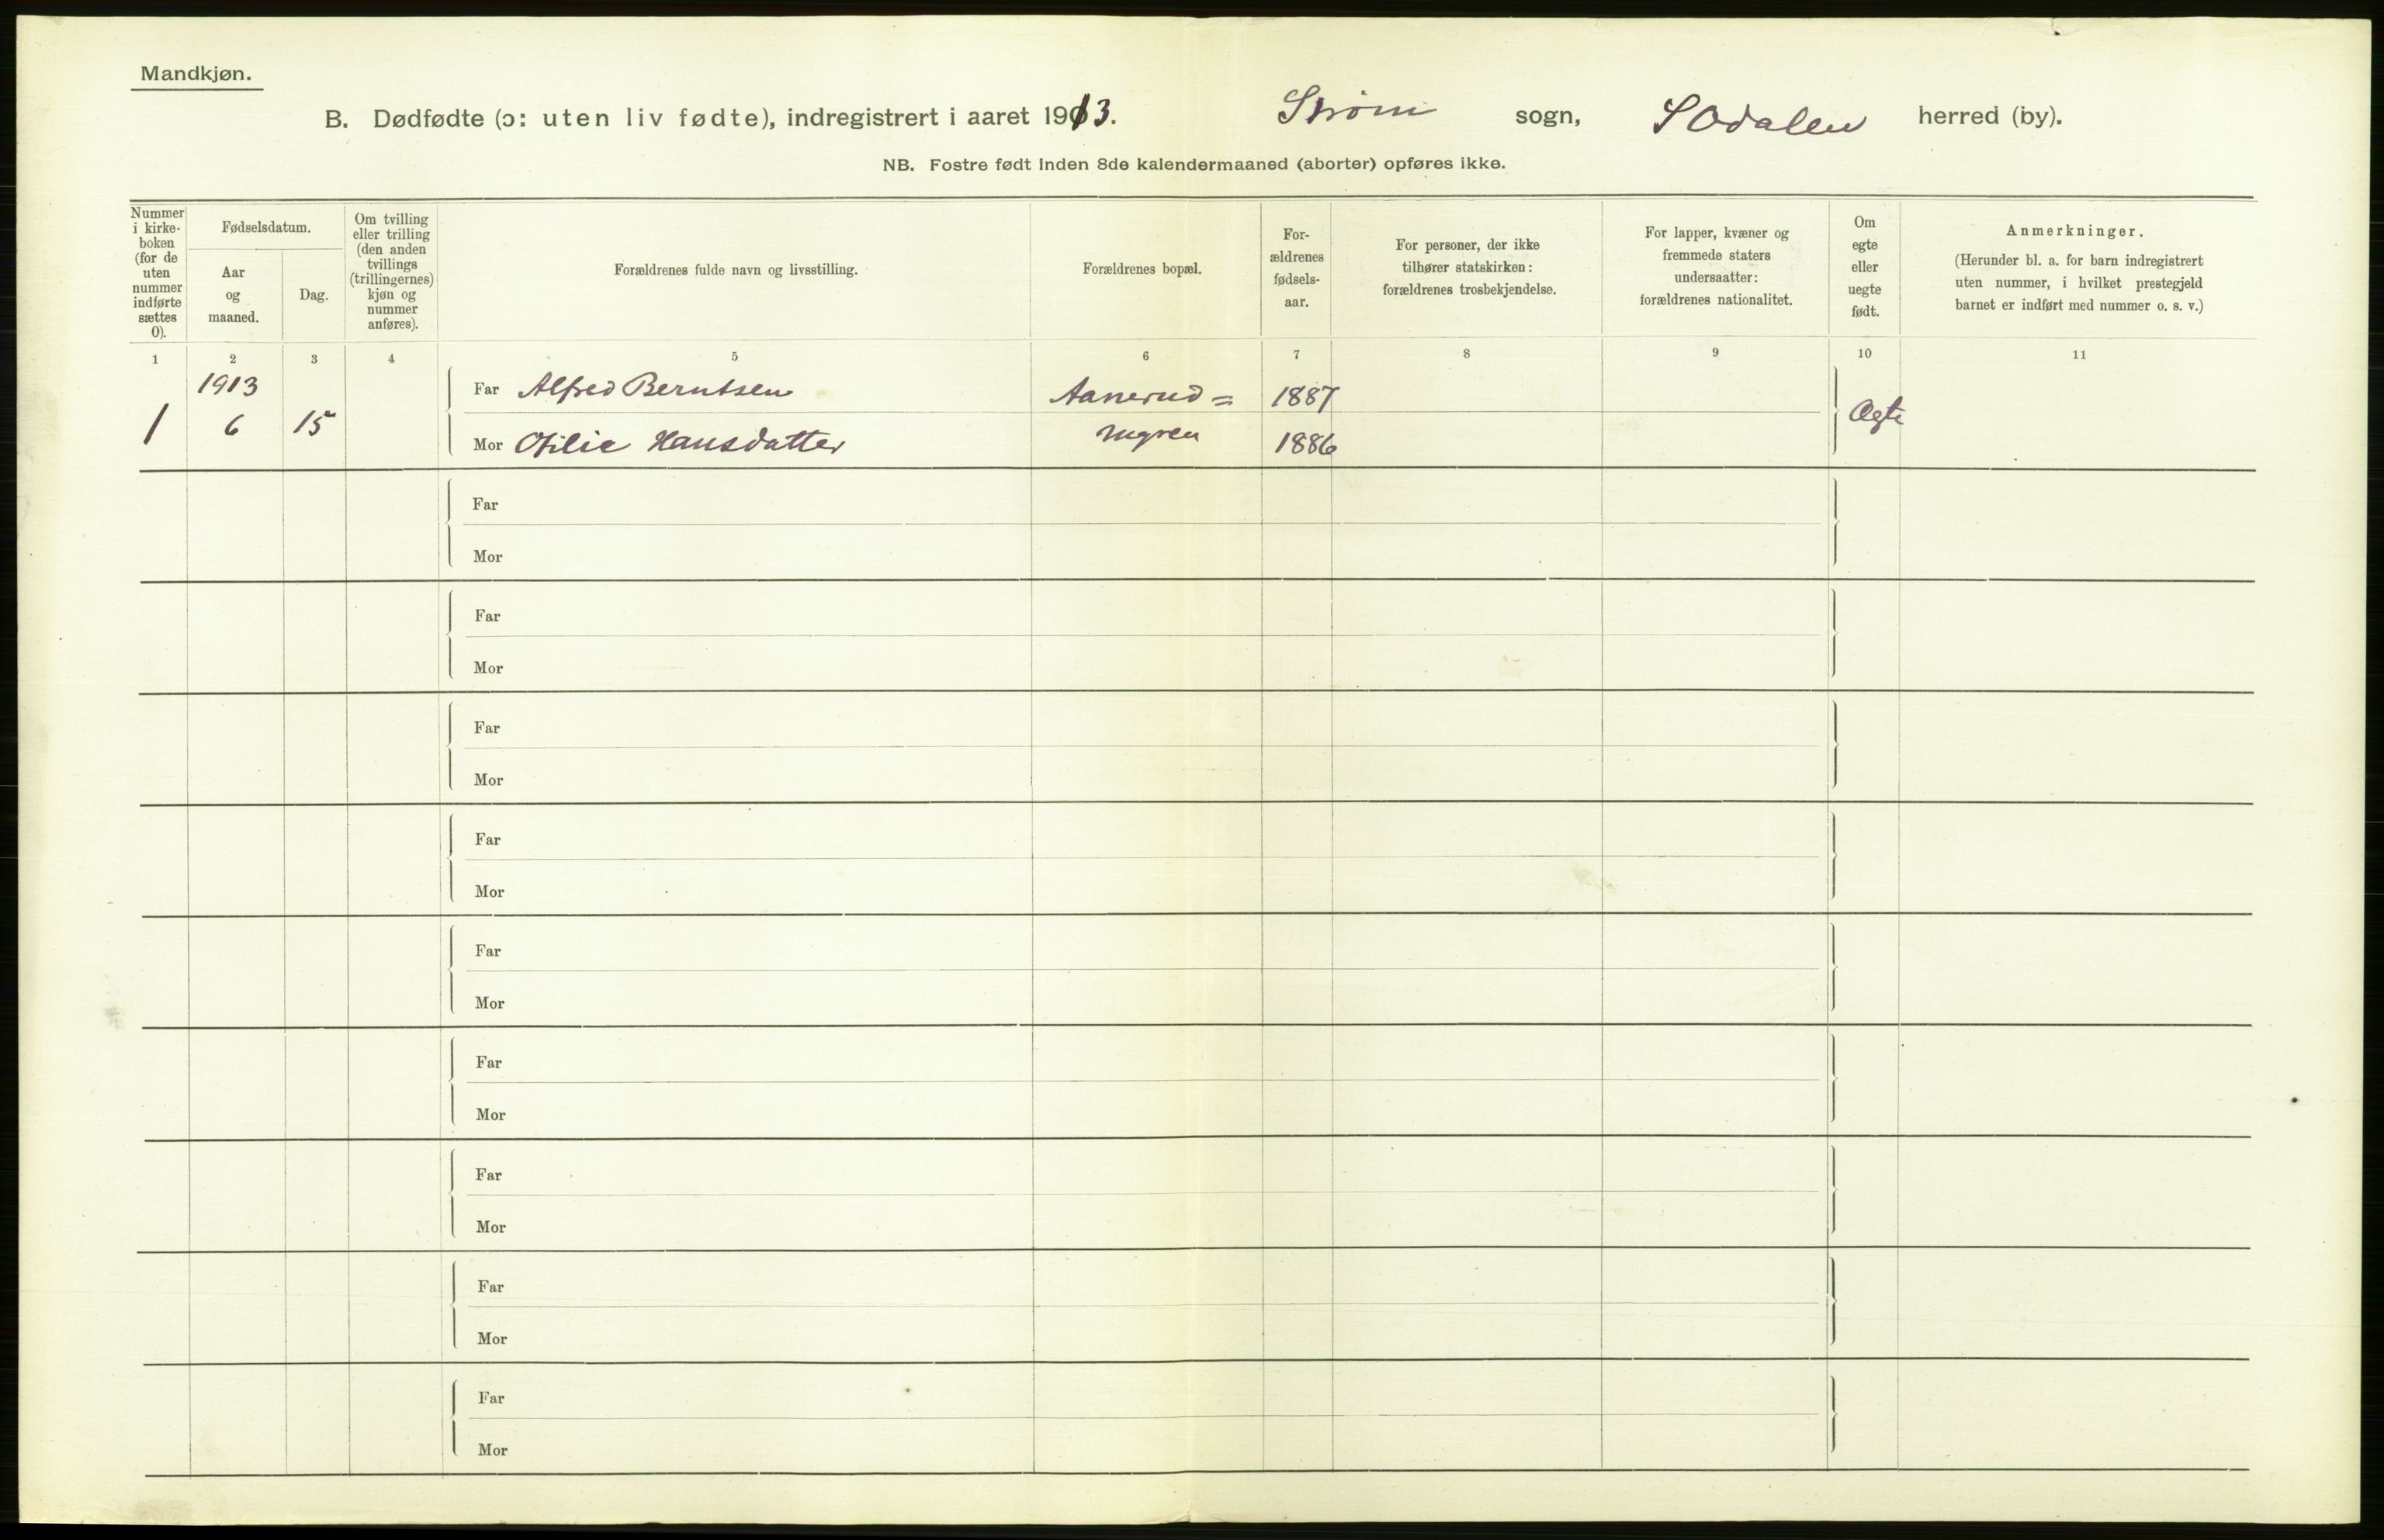 Mandkjøn.
B. Dødfødte (ɔ: uten liv fødte), indregistrert i aaret 1913. Strøm sogn, S Odalen herred (by).
NB. Fostre født inden 8de kalendermaaned (aborter) opføres ikke.
Nummer
i kirke-
boken
(for de
uten
nummer
indførte
sættes
0).
Fødselsdatum.
Aar
og
maaned.
Dag.
Om tvilling
eller trilling
(den anden
tvillings
(trillingernes)
kjøn og
nummer
anføres).
Forældrenes fulde navn og livsstilling.
Forældrenes bopæl.
For-
ældrenes
fødsels-
aar.
For personer, der ikke
tilhører statskirken:
forældrenes trosbekjendelse.
For lapper, kvæner og
fremmede staters
undersaatter:
forældrenes nationalitet.
Om
egte
eller
uegte
født.
Anmerkninger.
(Herunder bl. a. for barn indregistrert
uten nummer, i hvilket prestegjeld
barnet er indført med nummer o. s. v.)
1 2 3 4 5 6 7 8 9 10 11
1913 Far Alfred Berntsen Aanerud= 1887
1 6 15 Mor Otilie Hansdatter myren 1886 Ægte
Far
Mor
Far
Mor
Far
Mor
Far
Mor
Far
Mor
Far
Mor
Far
Mor
Far
Mor
Far
Mor